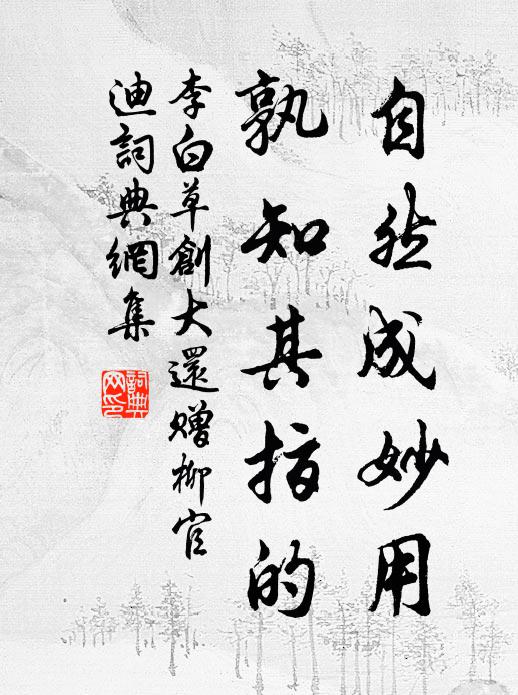 自然成妙用
孰知其指的
李白草創大還赠柳官
迪詞典網集
詞典
网印